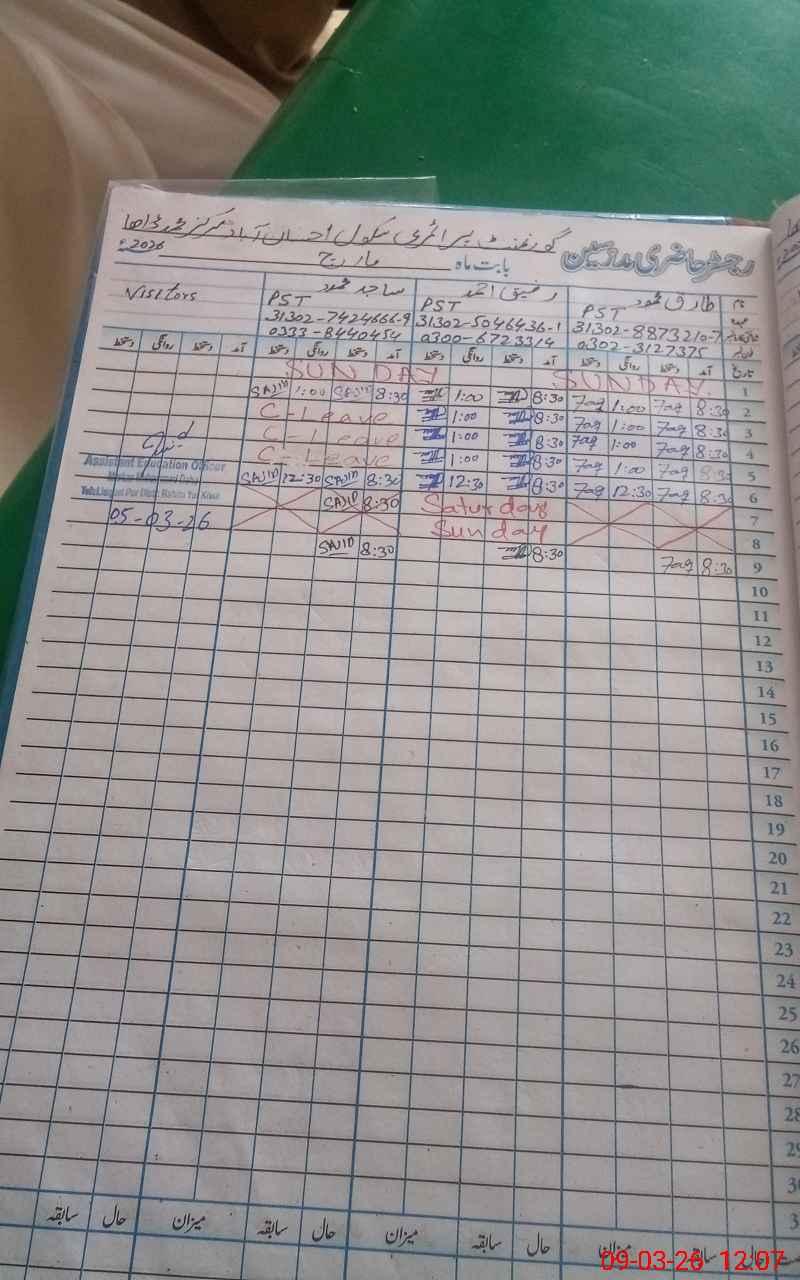 رجسٹر حاضری مدرسین گورنمنٹ پرائمری سکول احسان آباد مرکز محمد ڈاھا
بابت ماہ مارچ 2026ء
نام طارق محمود رفیق احمد ساجد محمود Visitors
عہدہ PST PST PST
31302-8873210-7 31302-5046436-1 31302-7424666-9
0302-3127375 0300-6723314 0333-8440454
تاریخ آمد دستخط روانگی دستخط آمد دستخط روانگی دستخط آمد دستخط روانگی دستخط آمد دستخط روانگی دستخط
1 SUNDAY SUNDAY
2 8:30 Taq 1:00 Taq 8:30 1:00 8:30 SAJID 1:00 SAJID
3 8:30 Taq 1:00 Taq 8:30 1:00 C-Leave
4 8:30 Taq 1:00 Taq 8:30 1:00 C-Leave
5 8:30 Taq 1:00 Taq 8:30 1:00 C-Leave
6 8:30 Taq 12:30 Taq 8:30 12:30 8:30 SAJID 12:30 SAJID
7 Saturday 8:30 SAJID
8 Sunday
9 8:30 Taq 8:30 8:30 SAJID
Assistant Education Officer
05-03-26
10
11
12
13
14
15
16
17
18
19
20
21
22
23
24
25
26
27
28
29
30
3
میزان حال سابقہ میزان حال سابقہ میزان حال سابقہ
09-03-26 12:07